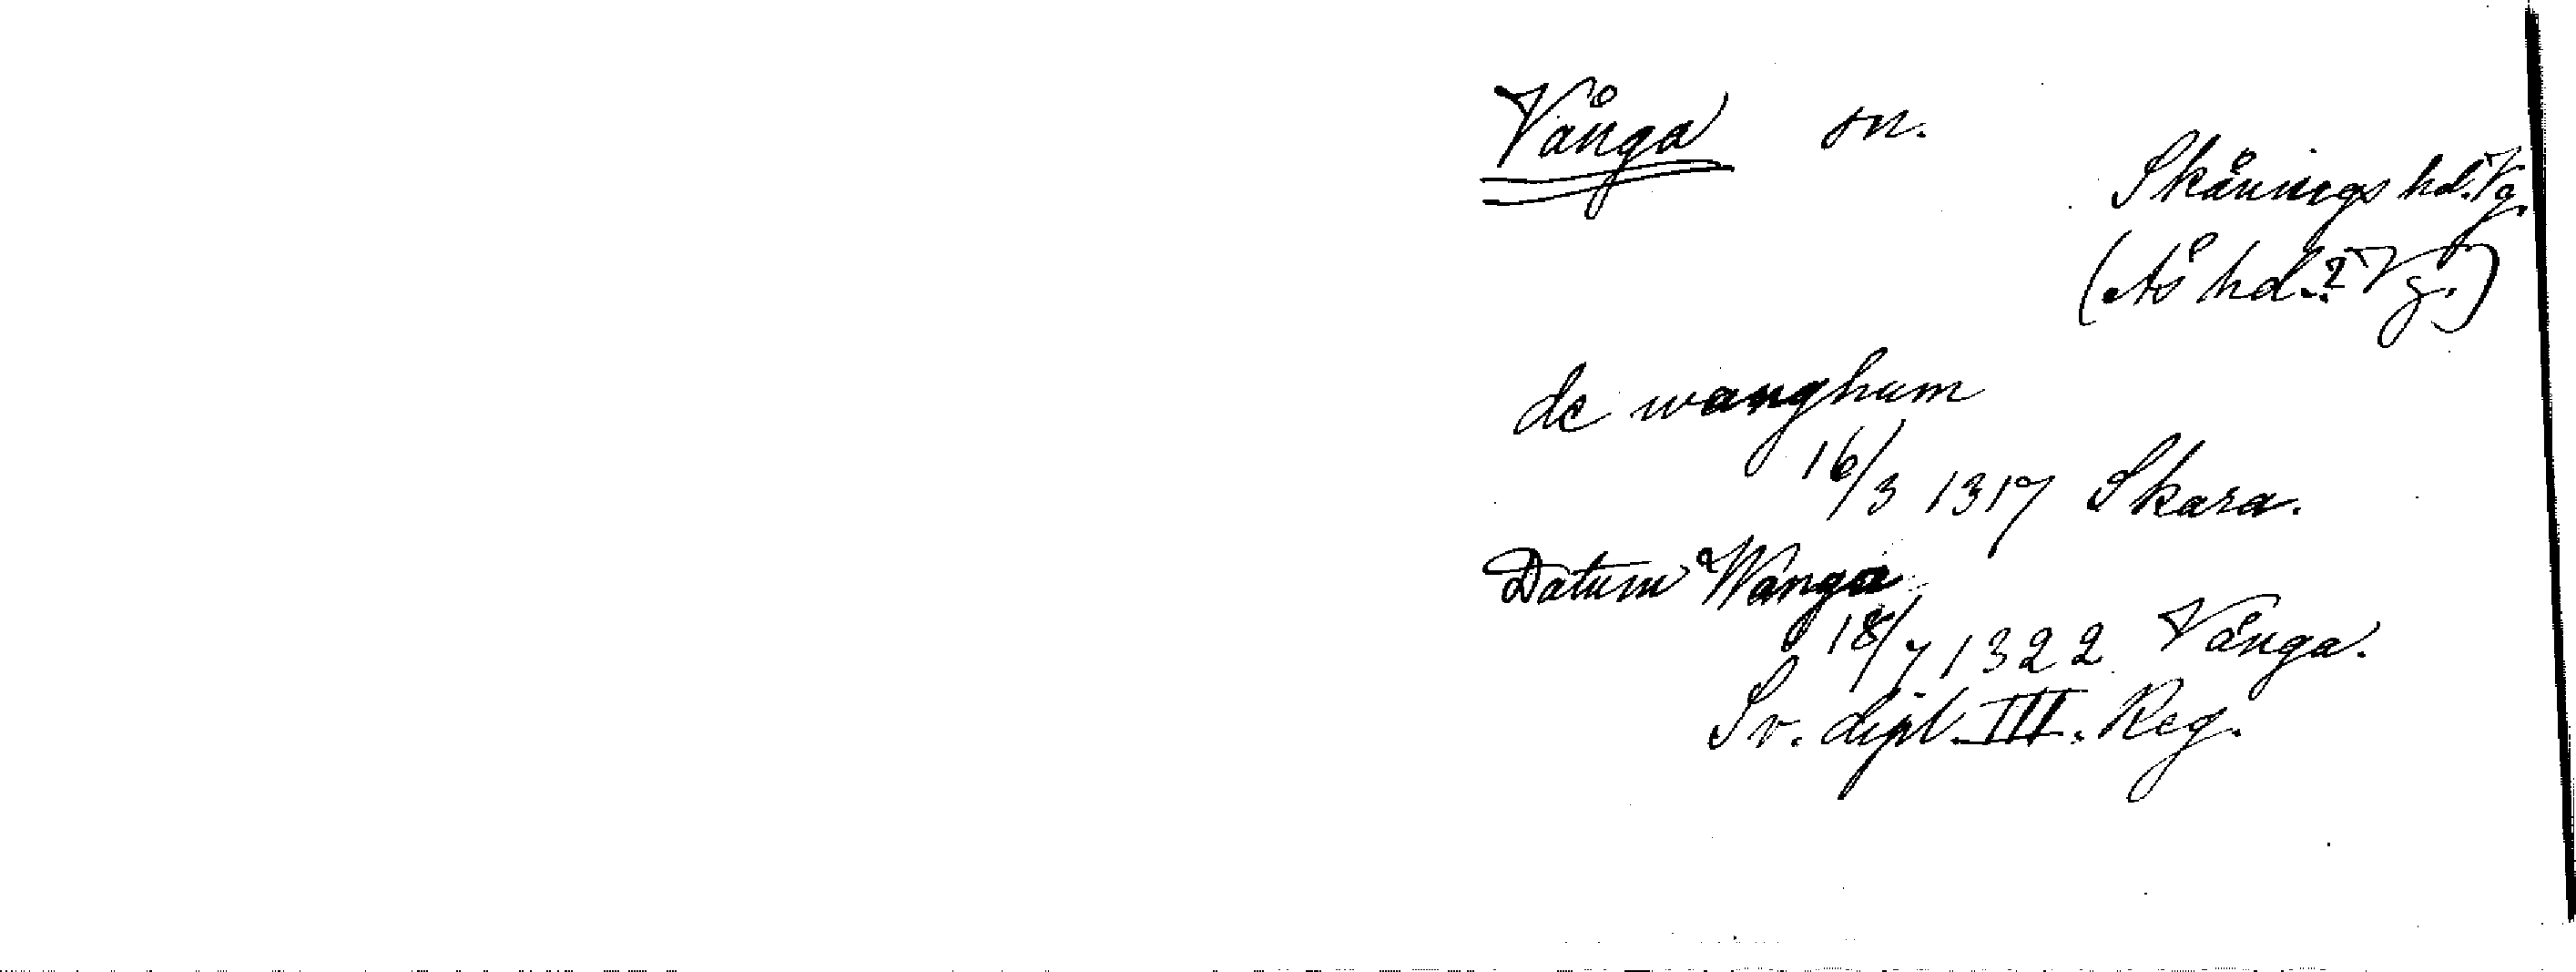 Vånga sn.
Skånings hd. Vg.
(Ås hd.? Vg.)
de wanghum
16/3 1317 Skara.
Datum Wanga
18/7 1322 Vånga.
Sv. dipl. III. Reg.